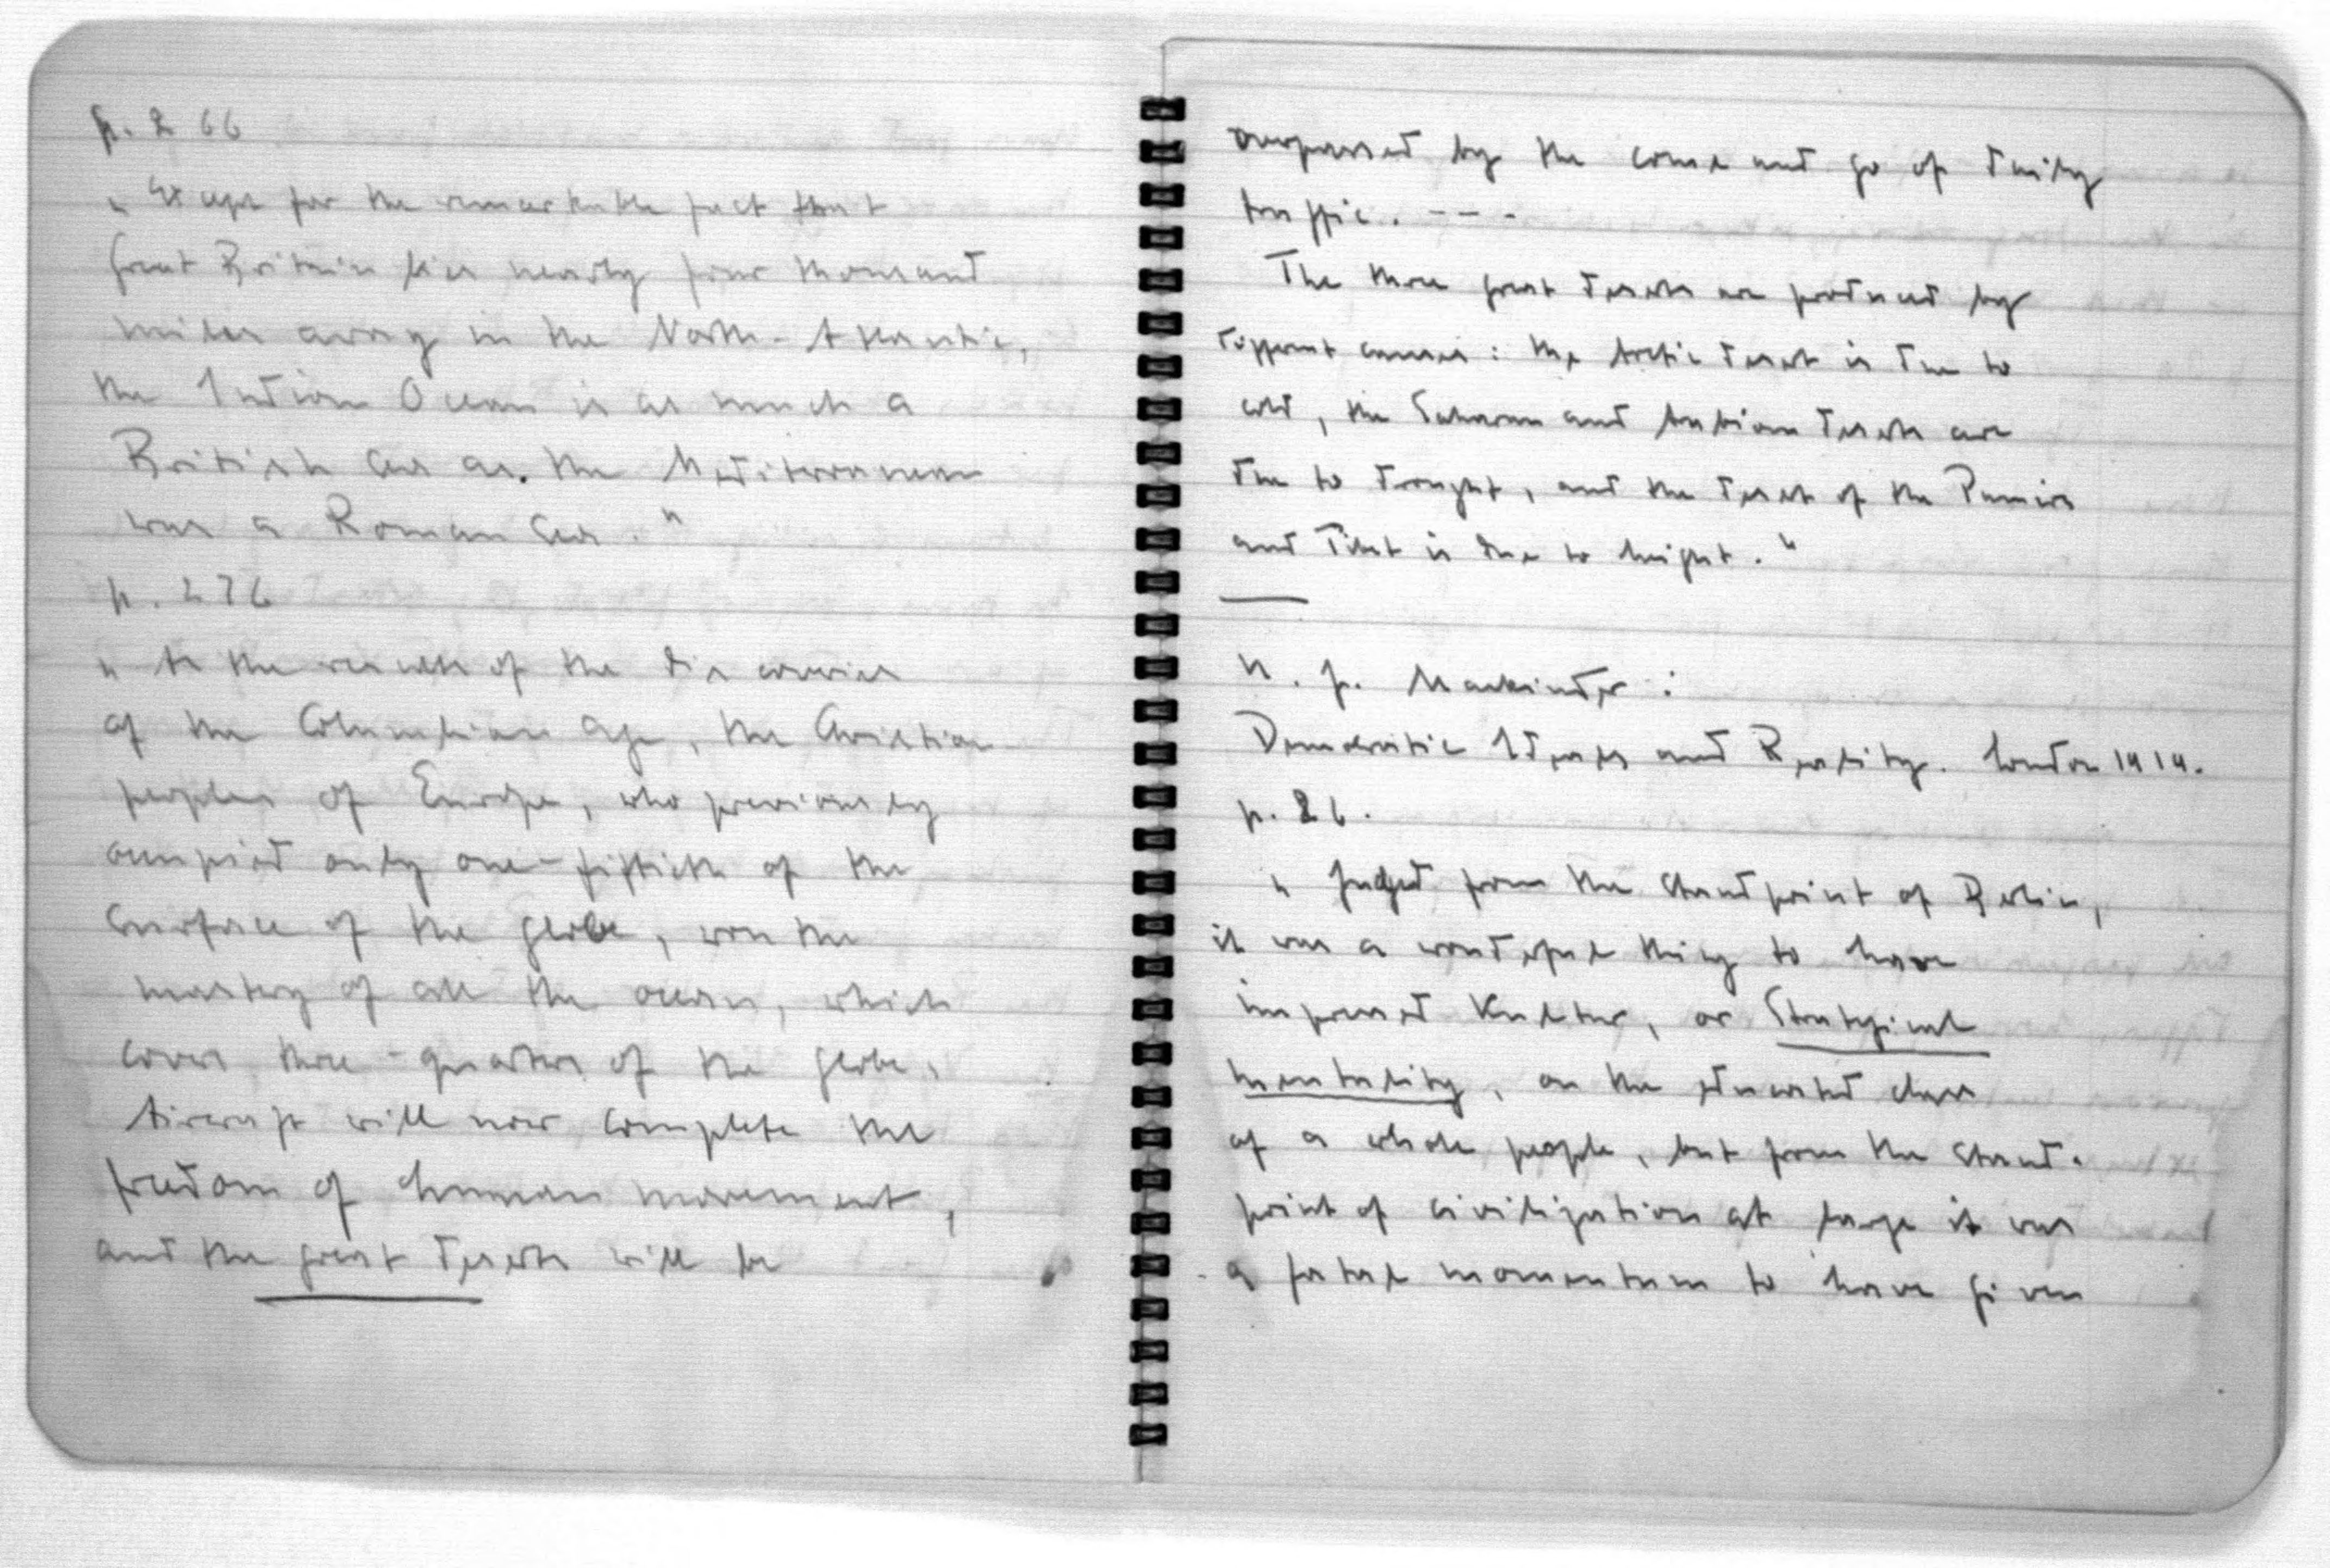 p. 266
„ Except for the remarkable fact that
Great Britain lies nearly four thousand
miles away in the North-Atlantic,
the Indian Ocean is as much a
British Sea as the Mediterranean
was a Roman Sea. "
p. 276
„ As the result of the discoveries
of the Columbian Age, the Christian
peoples of Europe, who previously
occupied only one-fiftieth of the
surface of the globe, won the
mastery of all the oceans, which
cover three-quarters of the globe.
Aircraft will now complete the
freedom of human movement,
and the great deserts will be
overpassed by the come and go of daily
traffic. - - -
The three great deserts are produced by
different causes: the Arctic desert is due to
cold, the Saharan and Arabian deserts are
due to drought, and the desert of the Pamirs
and Tibet is due to height. "
H. J. Mackinder:
Democratic Ideals and Reality. London 1919.
p. 26.
„ Judged from the standpoint of Berlin,
it was a wonderful thing to have
impressed Kultur, or Strategical
mentality, on the educated class
of a whole people, but from the stand-
point of civilization at large it was
a fatal momentum to have given